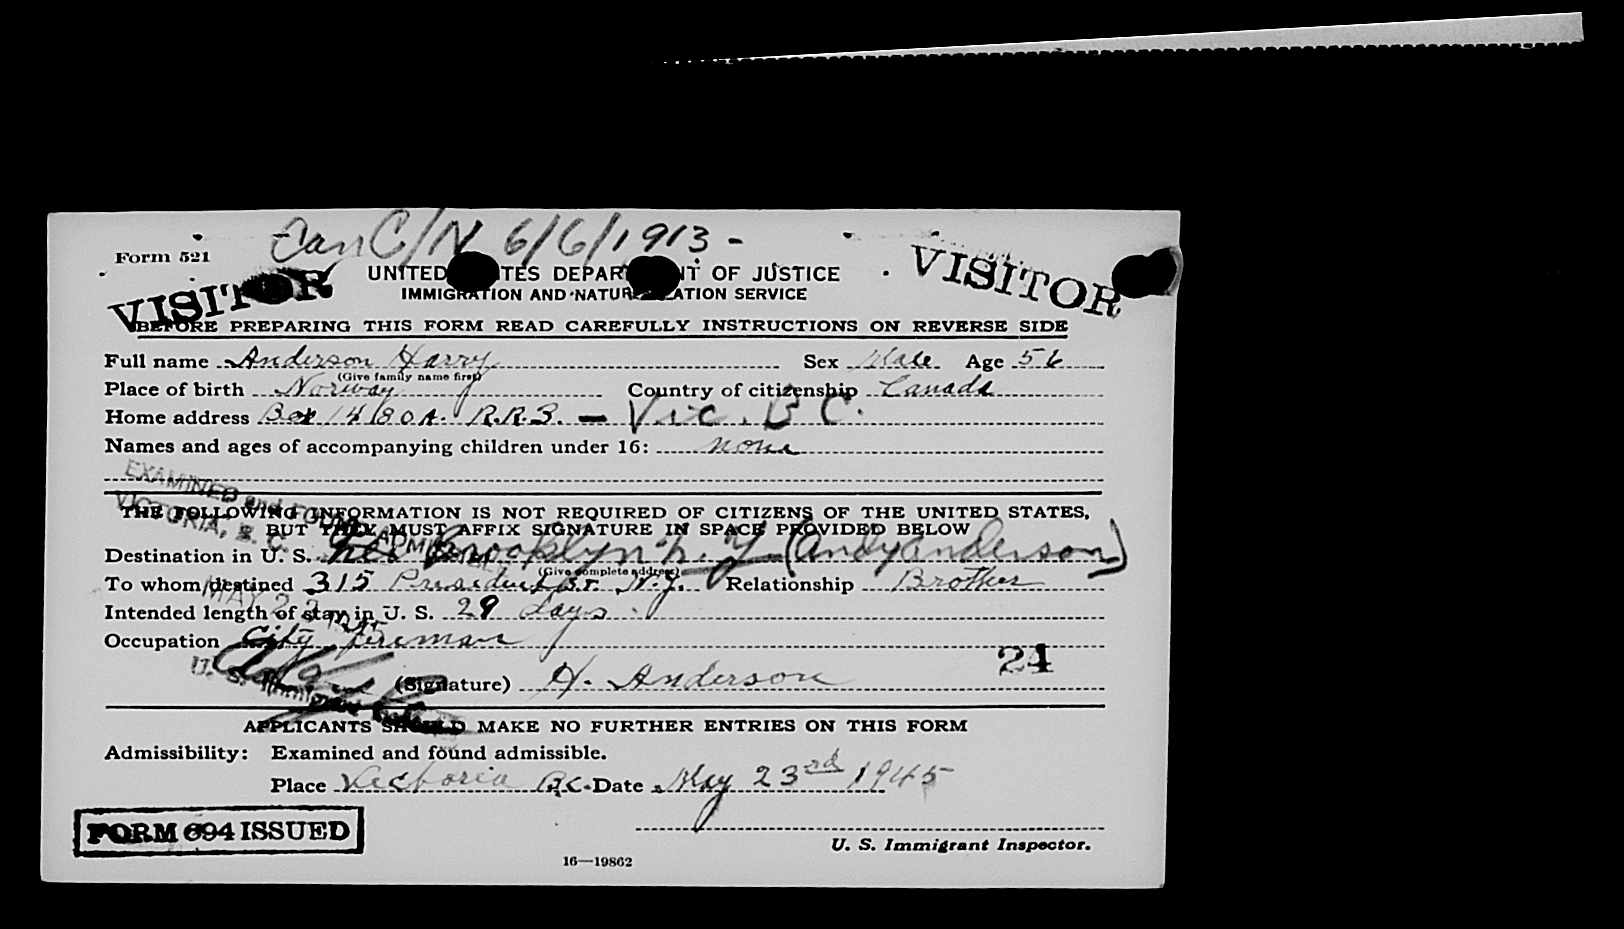 Can C/N 6/6/1913 -
Form 521
VISITOR VISITOR
UNITED STATES DEPARTMENT OF JUSTICE
IMMIGRATION AND NATURALIZATION SERVICE
BEFORE PREPARING THIS FORM READ CAREFULLY INSTRUCTIONS ON REVERSE SIDE
Full name Anderson Harry Sex Male Age 56
(Give family name first)
Place of birth Norway Country of citizenship Canada
Home address Box 1480A. R.R.3. - Vic. B C.
Names and ages of accompanying children under 16: none
EXAMINED and FOUND ADMISSIBLE
VICTORIA, B. C.
THE FOLLOWING INFORMATION IS NOT REQUIRED OF CITIZENS OF THE UNITED STATES,
BUT THEY MUST AFFIX SIGNATURE IN SPACE PROVIDED BELOW
Destination in U. S. Brooklyn N. Y. (Andy Anderson)
(Give complete address)
To whom destined 315 President St. N.Y. Relationship Brother
MAY 23 1945
Intended length of stay in U. S. 29 days.
Occupation City fireman
24
U. S. Immigrant
(Signature) H. Anderson
APPLICANTS SHOULD MAKE NO FURTHER ENTRIES ON THIS FORM
Admissibility: Examined and found admissible.
Place Victoria B.C. Date May 23rd 1945
FORM 694 ISSUED
U. S. Immigrant Inspector.
16—19862